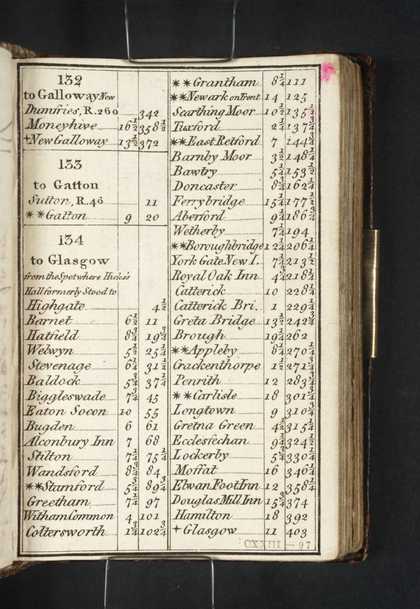 132
to Galloway New
Dumfries, R.260 342
Moneyhive 16½ 358½
+New Galloway 13½ 372
133
to Gatton
Sutton, R.48 11
**Gatton 9 20
134
to Glasgow
from the Spot where Hicks's
Hall formerly Stood to
Highgate 4½
Barnet 6½ 11
Hatfield 8¾ 19¾
Welwyn 5½ 25¼
Stevenage 6¼ 31½
Baldock 5¾ 37¼
Biggleswade 7¾ 45
Eaton Socon 10 55
Bugden 6 61
Alconbury Inn 7 68
Stilton 7¼ 75¼
Wandsford 8¾ 84
**Stamford 5¾ 89¾
Greetham 7¼ 97
Witham Common 4 101
Coltersworth 1¾ 102¾
**Grantham 8¼ 111
**Newark on Trent 14 125
Scarthing Moor 10½ 135½
Tuxford 2 137½
**East Retford 7 144½
Barnby Moor 3½ 148
Bawtry 5½ 153½
Doncaster 8¾ 162¼
Ferrybridge 15¼ 177½
Aberford 9¼ 186¾
Wetherby 7¼ 194
**Boroughbridge 12¼ 206¼
York Gate New I. 7¼ 213½
Royal Oak Inn 4¾ 218¼
Catterick 10 228¼
Catterick Bri. 1 229¼
Greta Bridge 13½ 242¾
Brough 19¼ 262
**Appleby 8¼ 270¼
Crackenthorpe 1½ 271¾
Penrith 12 283¾
**Carlisle 18 301¾
Longtown 9 310¾
Gretna Green 4¾ 315½
Ecclesfechan 9 324½
Lockerby 5¾ 330¼
Moffat 16 346¼
Elwan Foot Inn 12 358¼
Douglas Mill Inn 15¾ 374
Hamilton 18 392
+Glasgow 11 403
CXXIII—97